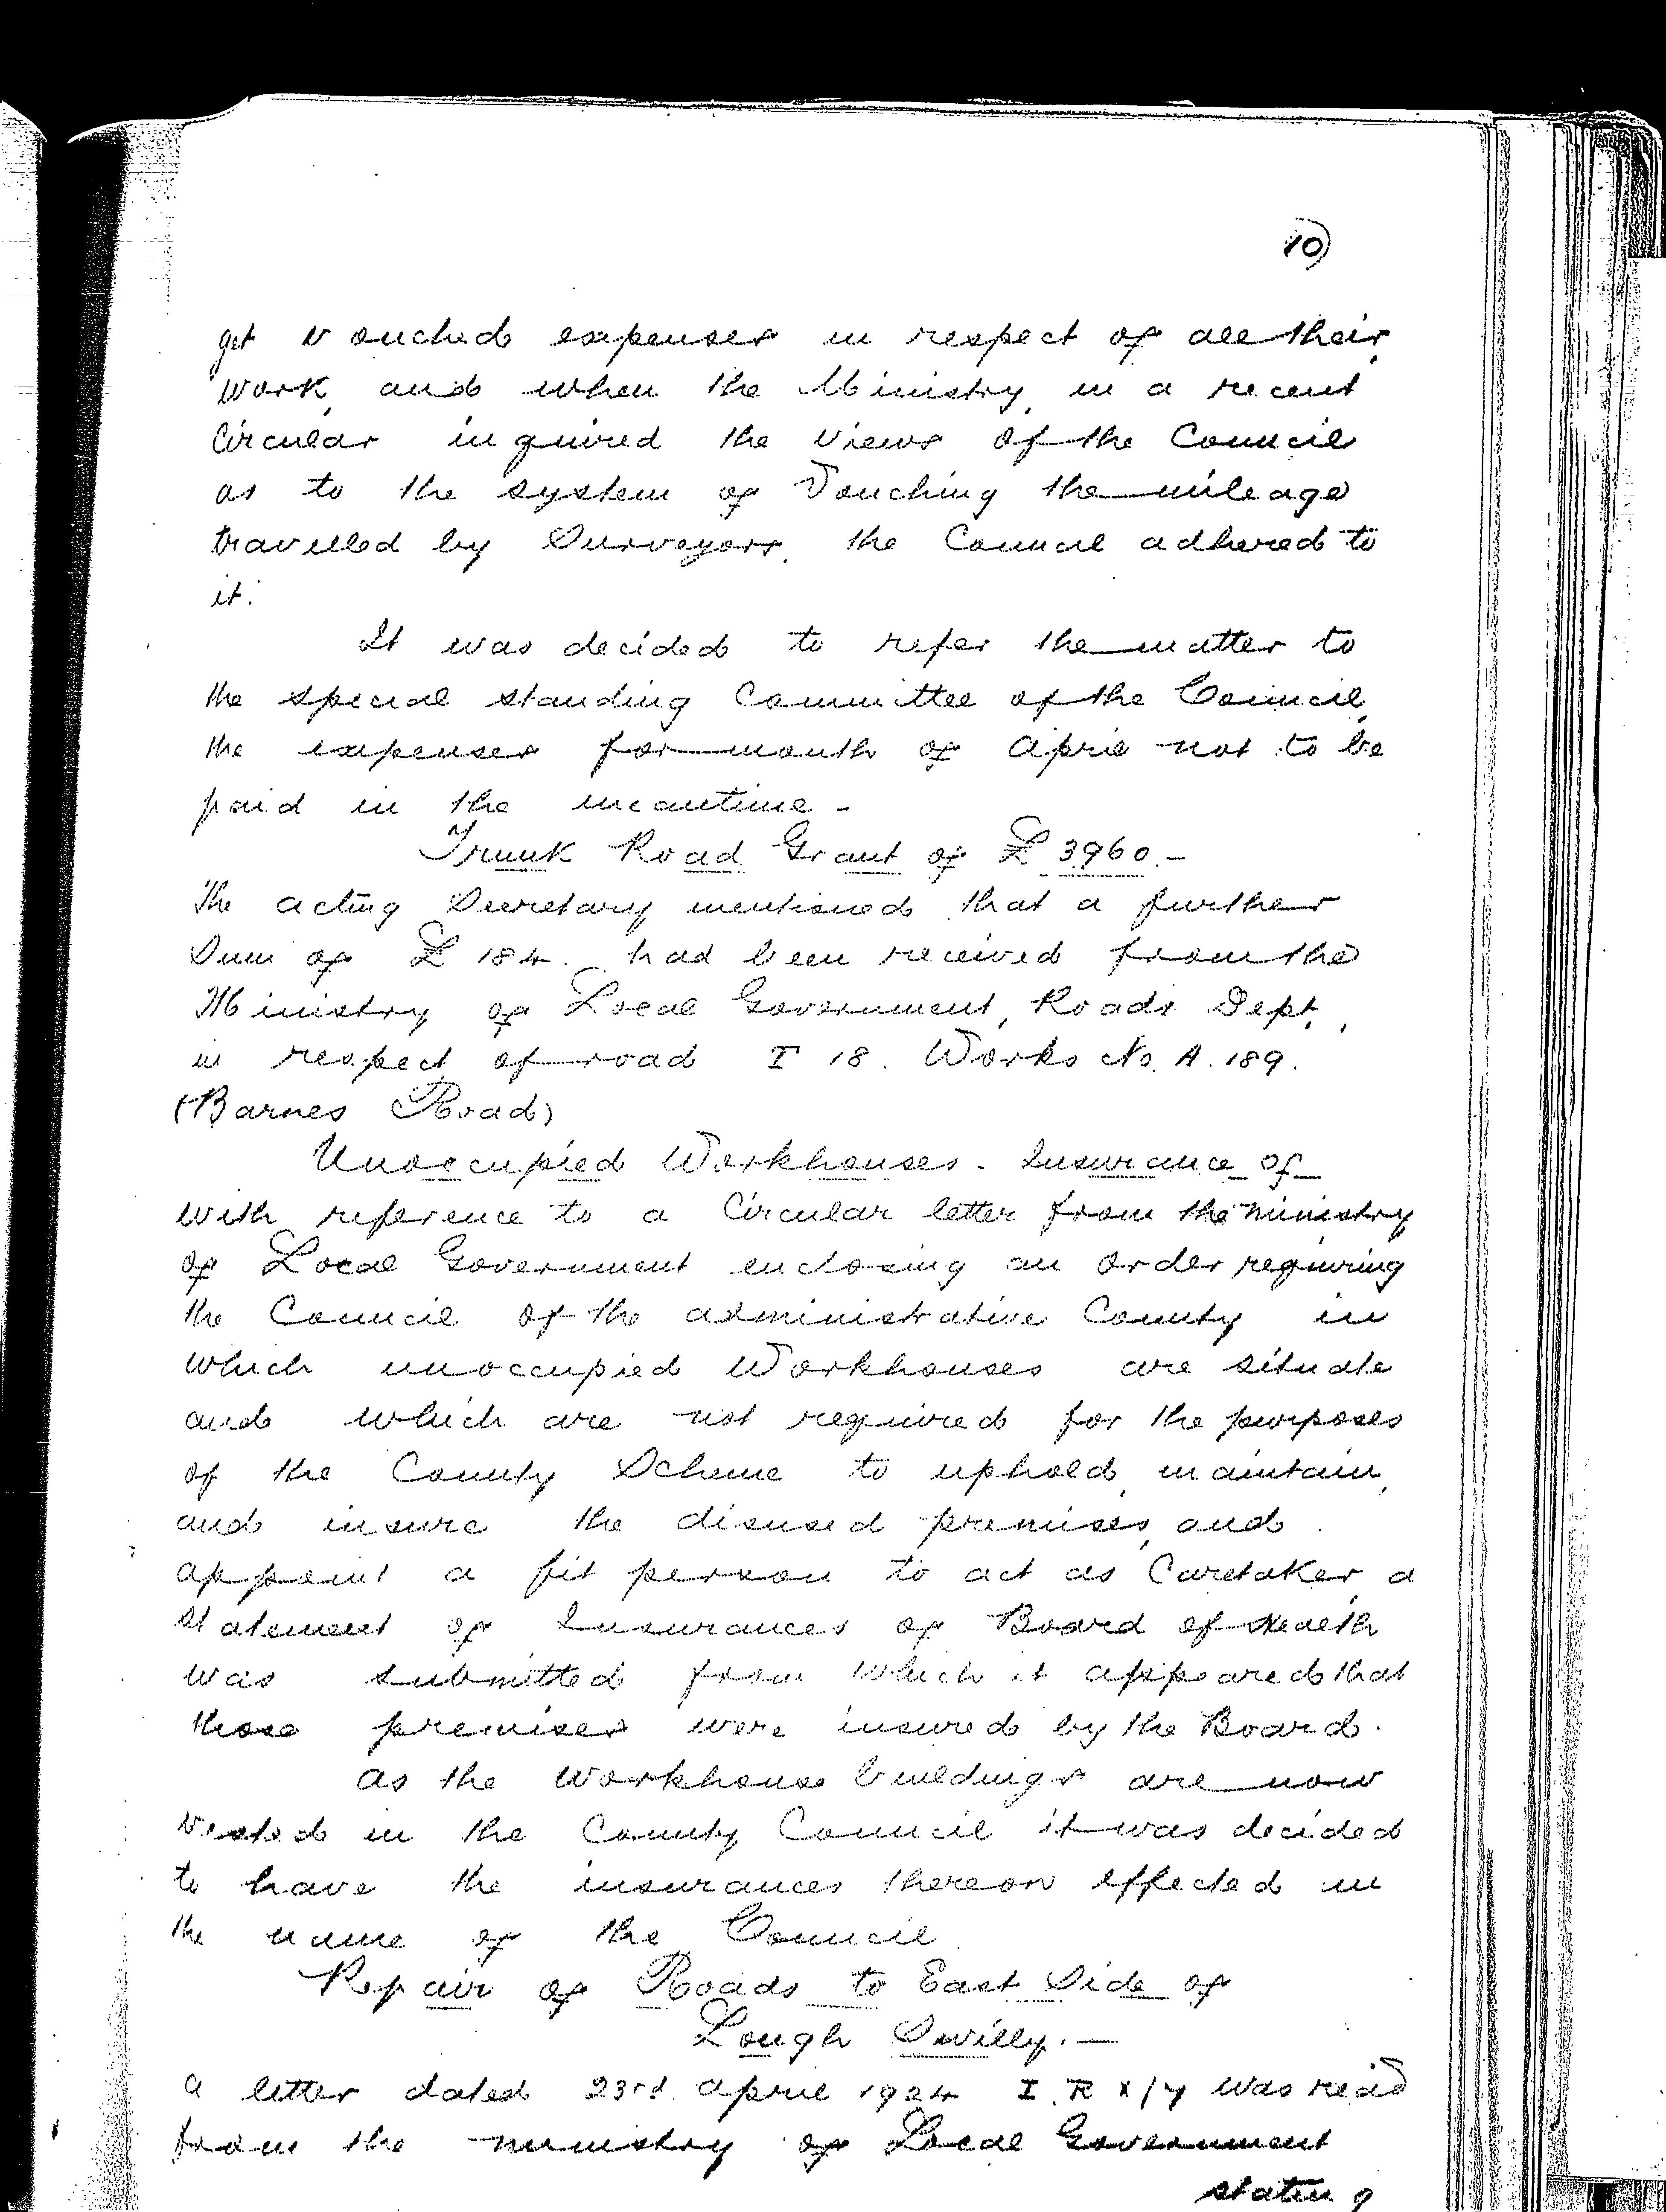 10)
get vouched expenses in respect of all their
work, and when the Ministry, in a recent
Circular inquired the views of the Council
as to the system of Vouching the mileage
travelled by Surveyors, the Council adhered to
it.
It was decided to refer the matter to
the special standing Committee of the Council,
the expenses for month of April not to be
paid in the meantime -
Trunk Road Grant of £3960.-
The acting Secretary mentioned that a further
Sum of £184. had been received from the
Ministry of Local Government, Roads Dept.,
in respect of road T 18. Works No. A. 189.
(Barnes Road)
Unoccupied Workhouses. Insurance of
With reference to a Circular letter from the Ministry
of Local Government enclosing an order requiring
the Council of the administrative County in
which unoccupied Workhouses are situate
and which are not required for the purposes
of the County Scheme to uphold, maintain,
and insure the disused premises, and
appoint a fit person to act as Caretaker, a
statement of Insurances of Board of Health
was submitted from which it appeared that
those premises were insured by the Board.
As the workhouse buildings are now
vested in the County Council it was decided
to have the insurances thereon effected in
the name of the Council.
Repair of Roads to East Side of
Lough Swilly.-
A letter dated 23rd April 1924 I. R X/Y was read
from the Ministry of Local Government
stating